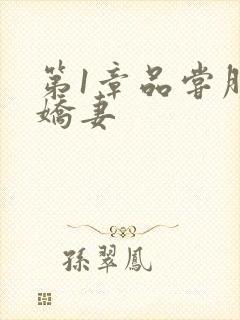 第1章品尝
嬌妻
孫翠鳳